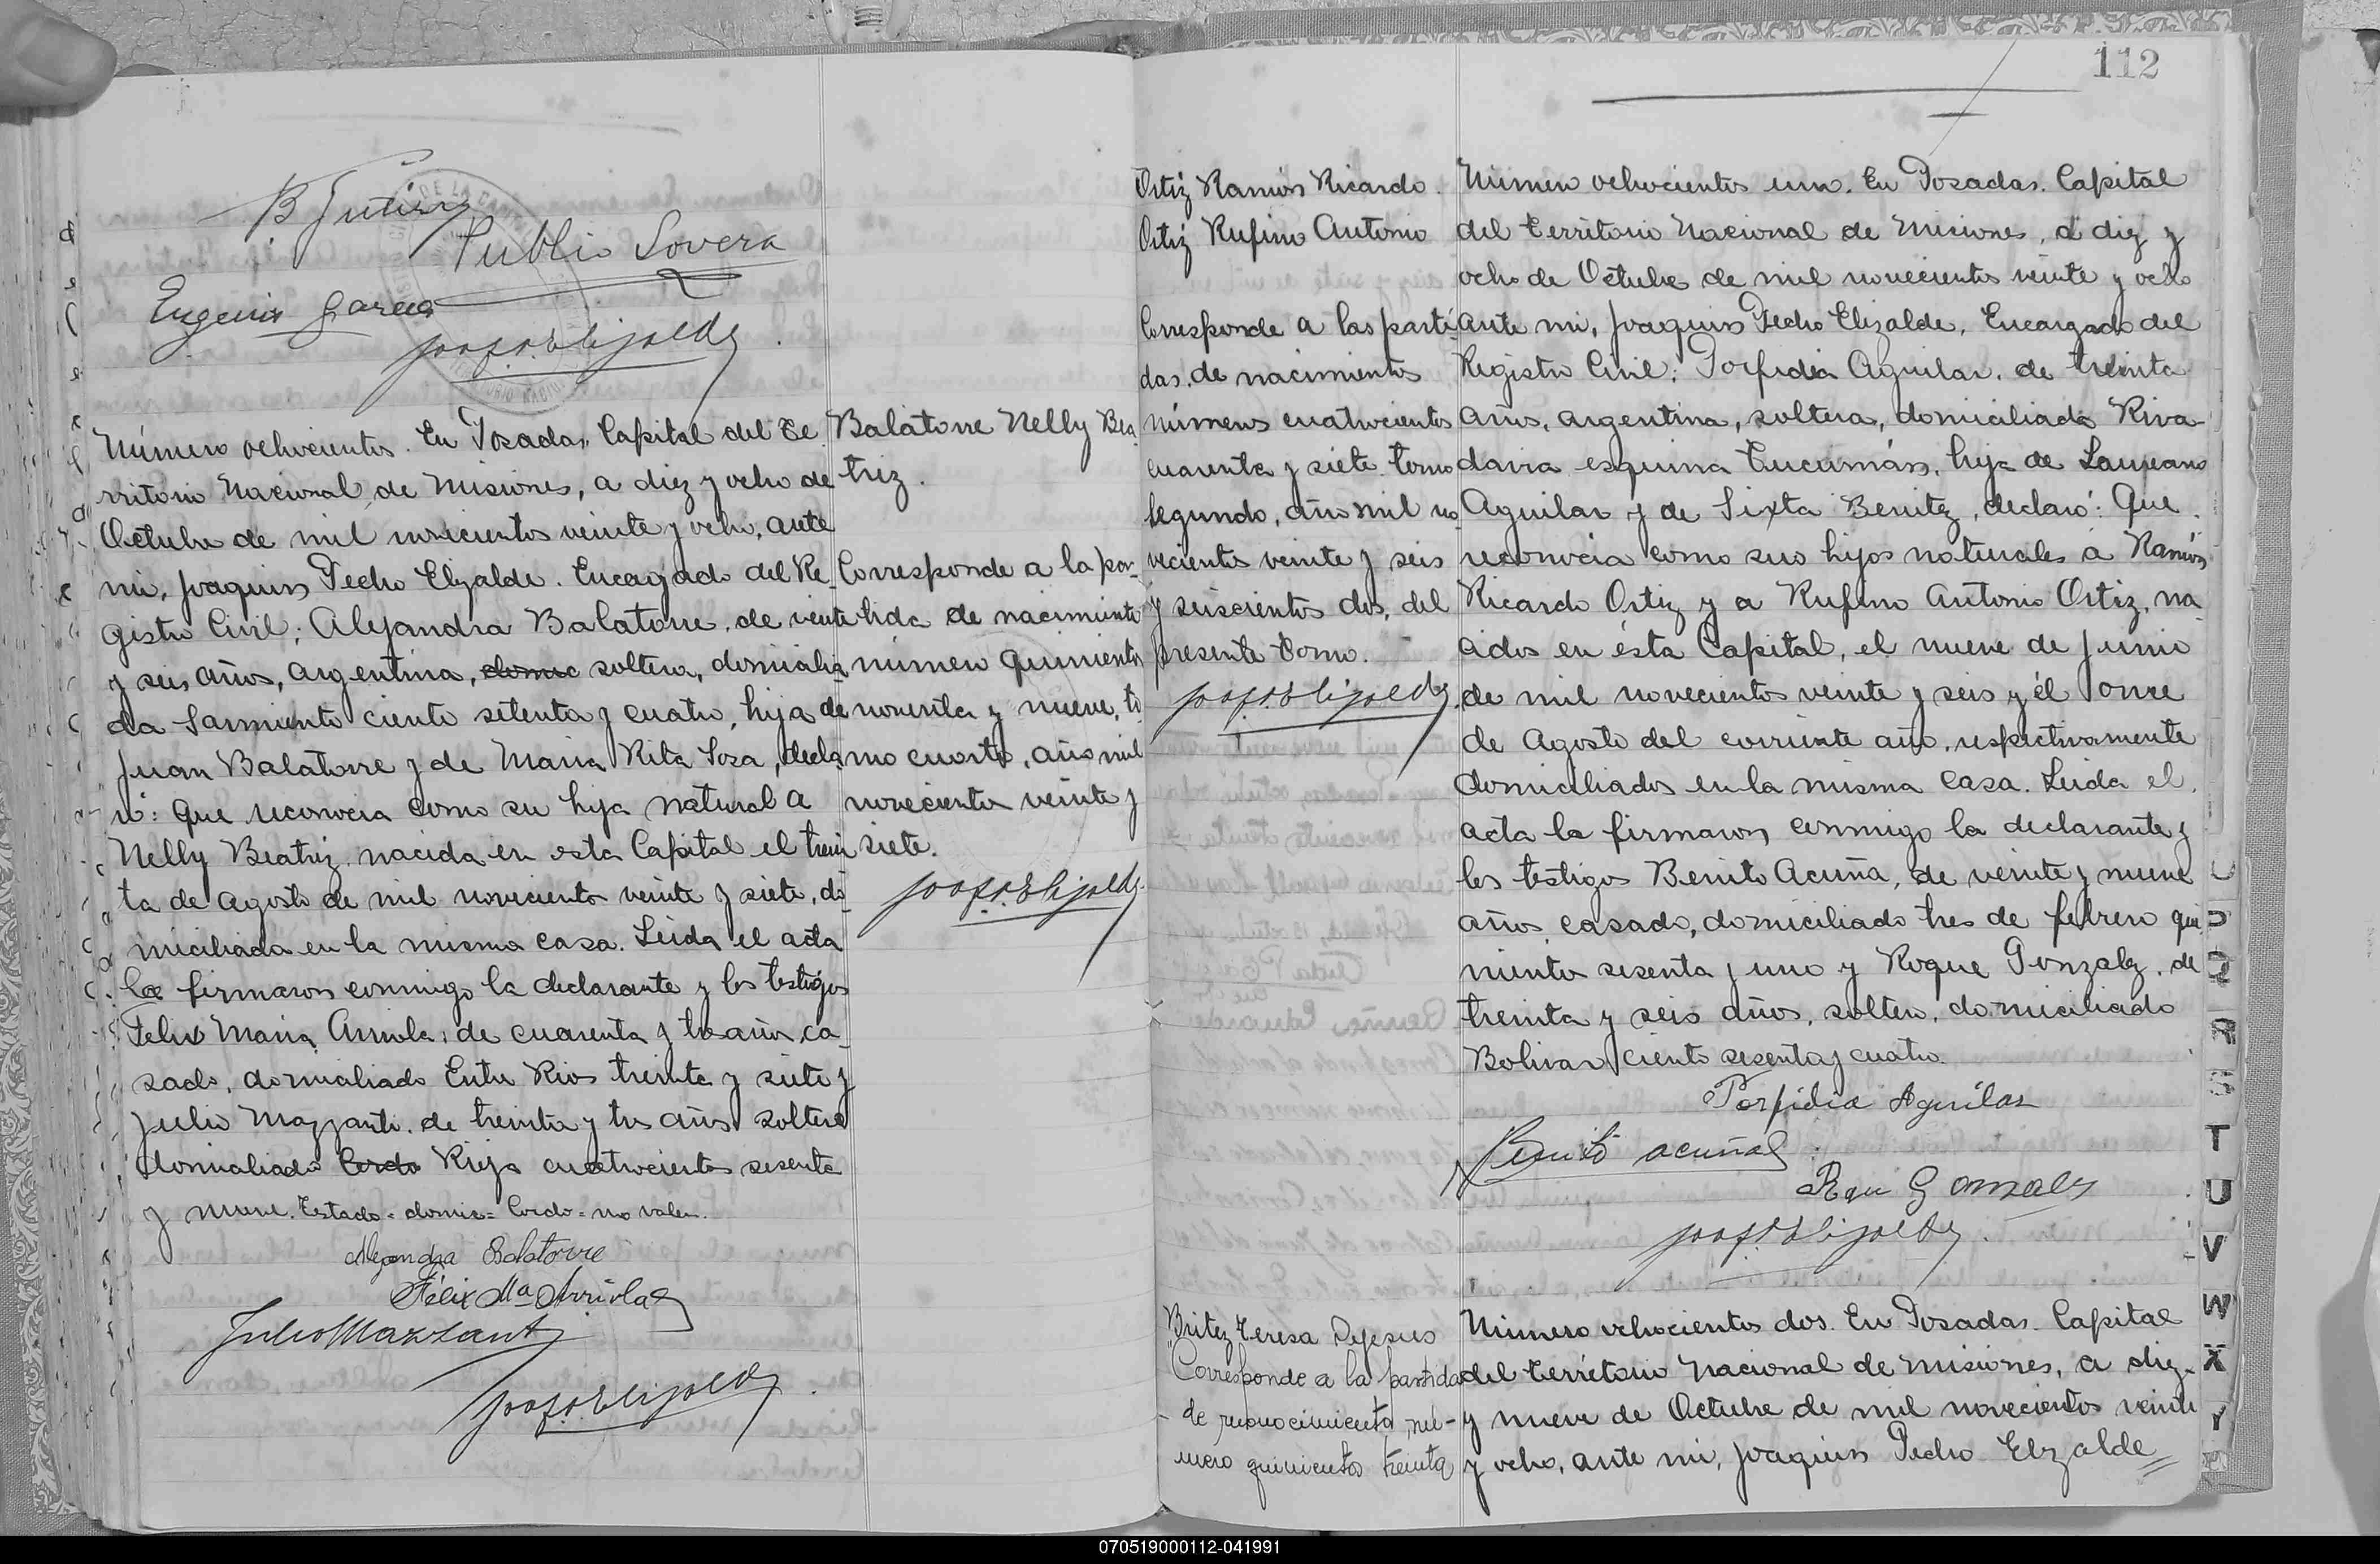 B Gutierrez
Publio Lovera
Eugenio Garcia
Número ochocientos. En Posadas, Capital del Te
rritorio Nacional de Misiones, a diez y ocho de
Octubre de mil novecientos veinte y ocho, ante
mi, Joaquin Pedro Elizalde. Encargado del Re-
gistro Civil; Alejandra Balatorre, de veinte
y seis años, argentina, domic soltera, domicilia
da Sarmiento ciento setenta y cuatro, hija de
Juan Balatorre y de Maria Rita Sosa, decla
ró: Que reconocia como su hija natural a
Nelly Beatriz, nacida en esta Capital el trein
ta de Agosto de mil novecientos veinte y siete, do
miciliada en la misma casa. Leida el acta
la firmaron conmigo la declarante y los testigos
Felix Maria Arriola, de cuarenta y tres años, ca-
sado, domiciliado Entre Rios treinta y siete y
Julio Mazzanti, de treinta y tres años soltero
domiciliado Cordo Rioja cuatrocientos sesenta
y nueve. Testado = domic = Cordo = no valen.
Alejandra Balatorre
Félix Ma Arriola
Julio Mazzanti
Balatorre Nelly Bea
triz.
Corresponde a la par-
tida de nacimiento
número quinientos
noventa y nueve, to
mo cuarto, año mil
novecientos veinte y
siete.
112
Ortiz Ramón Ricardo.
Ortiz Rufino Antonio
Corresponde a las parti
das de nacimientos
números cuatrocientos
cuarenta y siete tomo
segundo, año mil no
vecientos veinte y seis
y seiscientos dos, del
presente tomo.
Número ochocientos uno. En Posadas. Capital
del Territorio Nacional de Misiones, a diez y
ocho de Octubre de mil novecientos veinte y ocho
ante mi, Joaquin Pedro Elizalde, Encargado del
Registro Civil; Porfidia Aguilar, de treinta
años, argentina, soltera, domiciliada Riva-
davia esquina Tucumán, hija de Laureano
Aguilar y de Sixta Benitez, declaró: Que
reconocia como sus hijos naturales a Ramón
Ricardo Ortiz y a Rufino Antonio Ortiz, na
cidos en ésta Capital, el nueve de Junio
de mil novecientos veinte y seis y él once
de Agosto del corriente año, respectivamente
domiciliados en la misma casa. Leida el
acta la firmaron conmigo la declarante y
los testigos Benito Acuña, de veinte y nueve
años, casado, domiciliado tres de febrero qui
nientos sesenta y uno y Roque Gonzalez, de
treinta y seis años, soltero, domiciliado
Bolivar ciento sesenta y cuatro.
Porfidia Aguilar
Benito Acuña
Roque Gonzalez
Britez Teresa Dejesus
Corresponde a la partida
de reconocimiento, nú-
mero quinientos treinta
Número ochocientos dos. En Posadas. Capital
del Territorio Nacional de Misiones, a diez
y nueve de Octubre de mil novecientos veinte
y ocho, ante mi, Joaquin Pedro Elizalde
R
S
T
U
V
W
X
Y
070519000112-041991